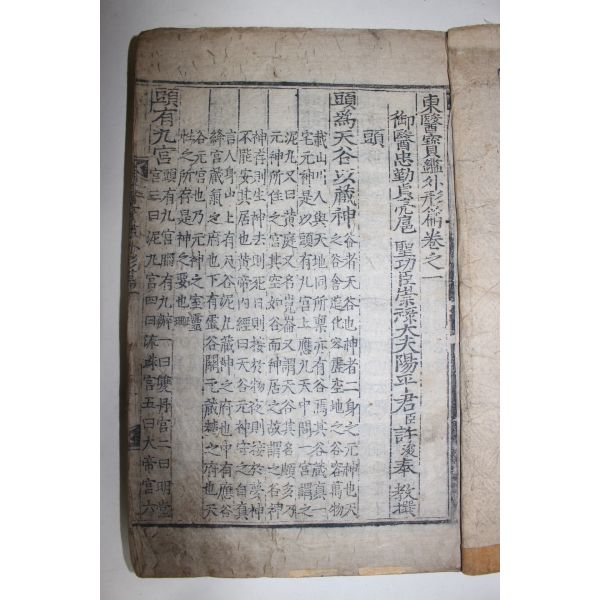 東醫寶鑑外形篇卷之一
御醫忠勤貞亮扈 聖功臣崇祿大夫陽平君臣許浚奉 敎撰
頭
頭爲天谷以藏神 谷者天谷也神者一身之元神也天
之谷含造化容虛空地之谷容萬物
載山川人與天地同所禀亦有谷焉其谷藏眞一
宅元神是以頭有九宮上應九天中間一宮謂之
泥丸又曰黃庭又名崑崙又謂天谷其名頗多乃
元神所住之宮其空如谷而神居之故謂之谷神
神存則生神去則死日則接於物夜則接於夢神
不能安其居也黃帝內經曰天谷元神守之自眞
言人身中上有天谷泥丸藏神之府也中有應谷
絳宮藏氣之府也下有虛谷關元藏精之府也天
谷元宮也乃元神之室靈
性之所存是神之要也
頭有九宮 頭有九宮腦有九瓣一曰雙丹宮二曰明堂
宮三曰泥丸宮四曰流珠宮五曰大帝宮六